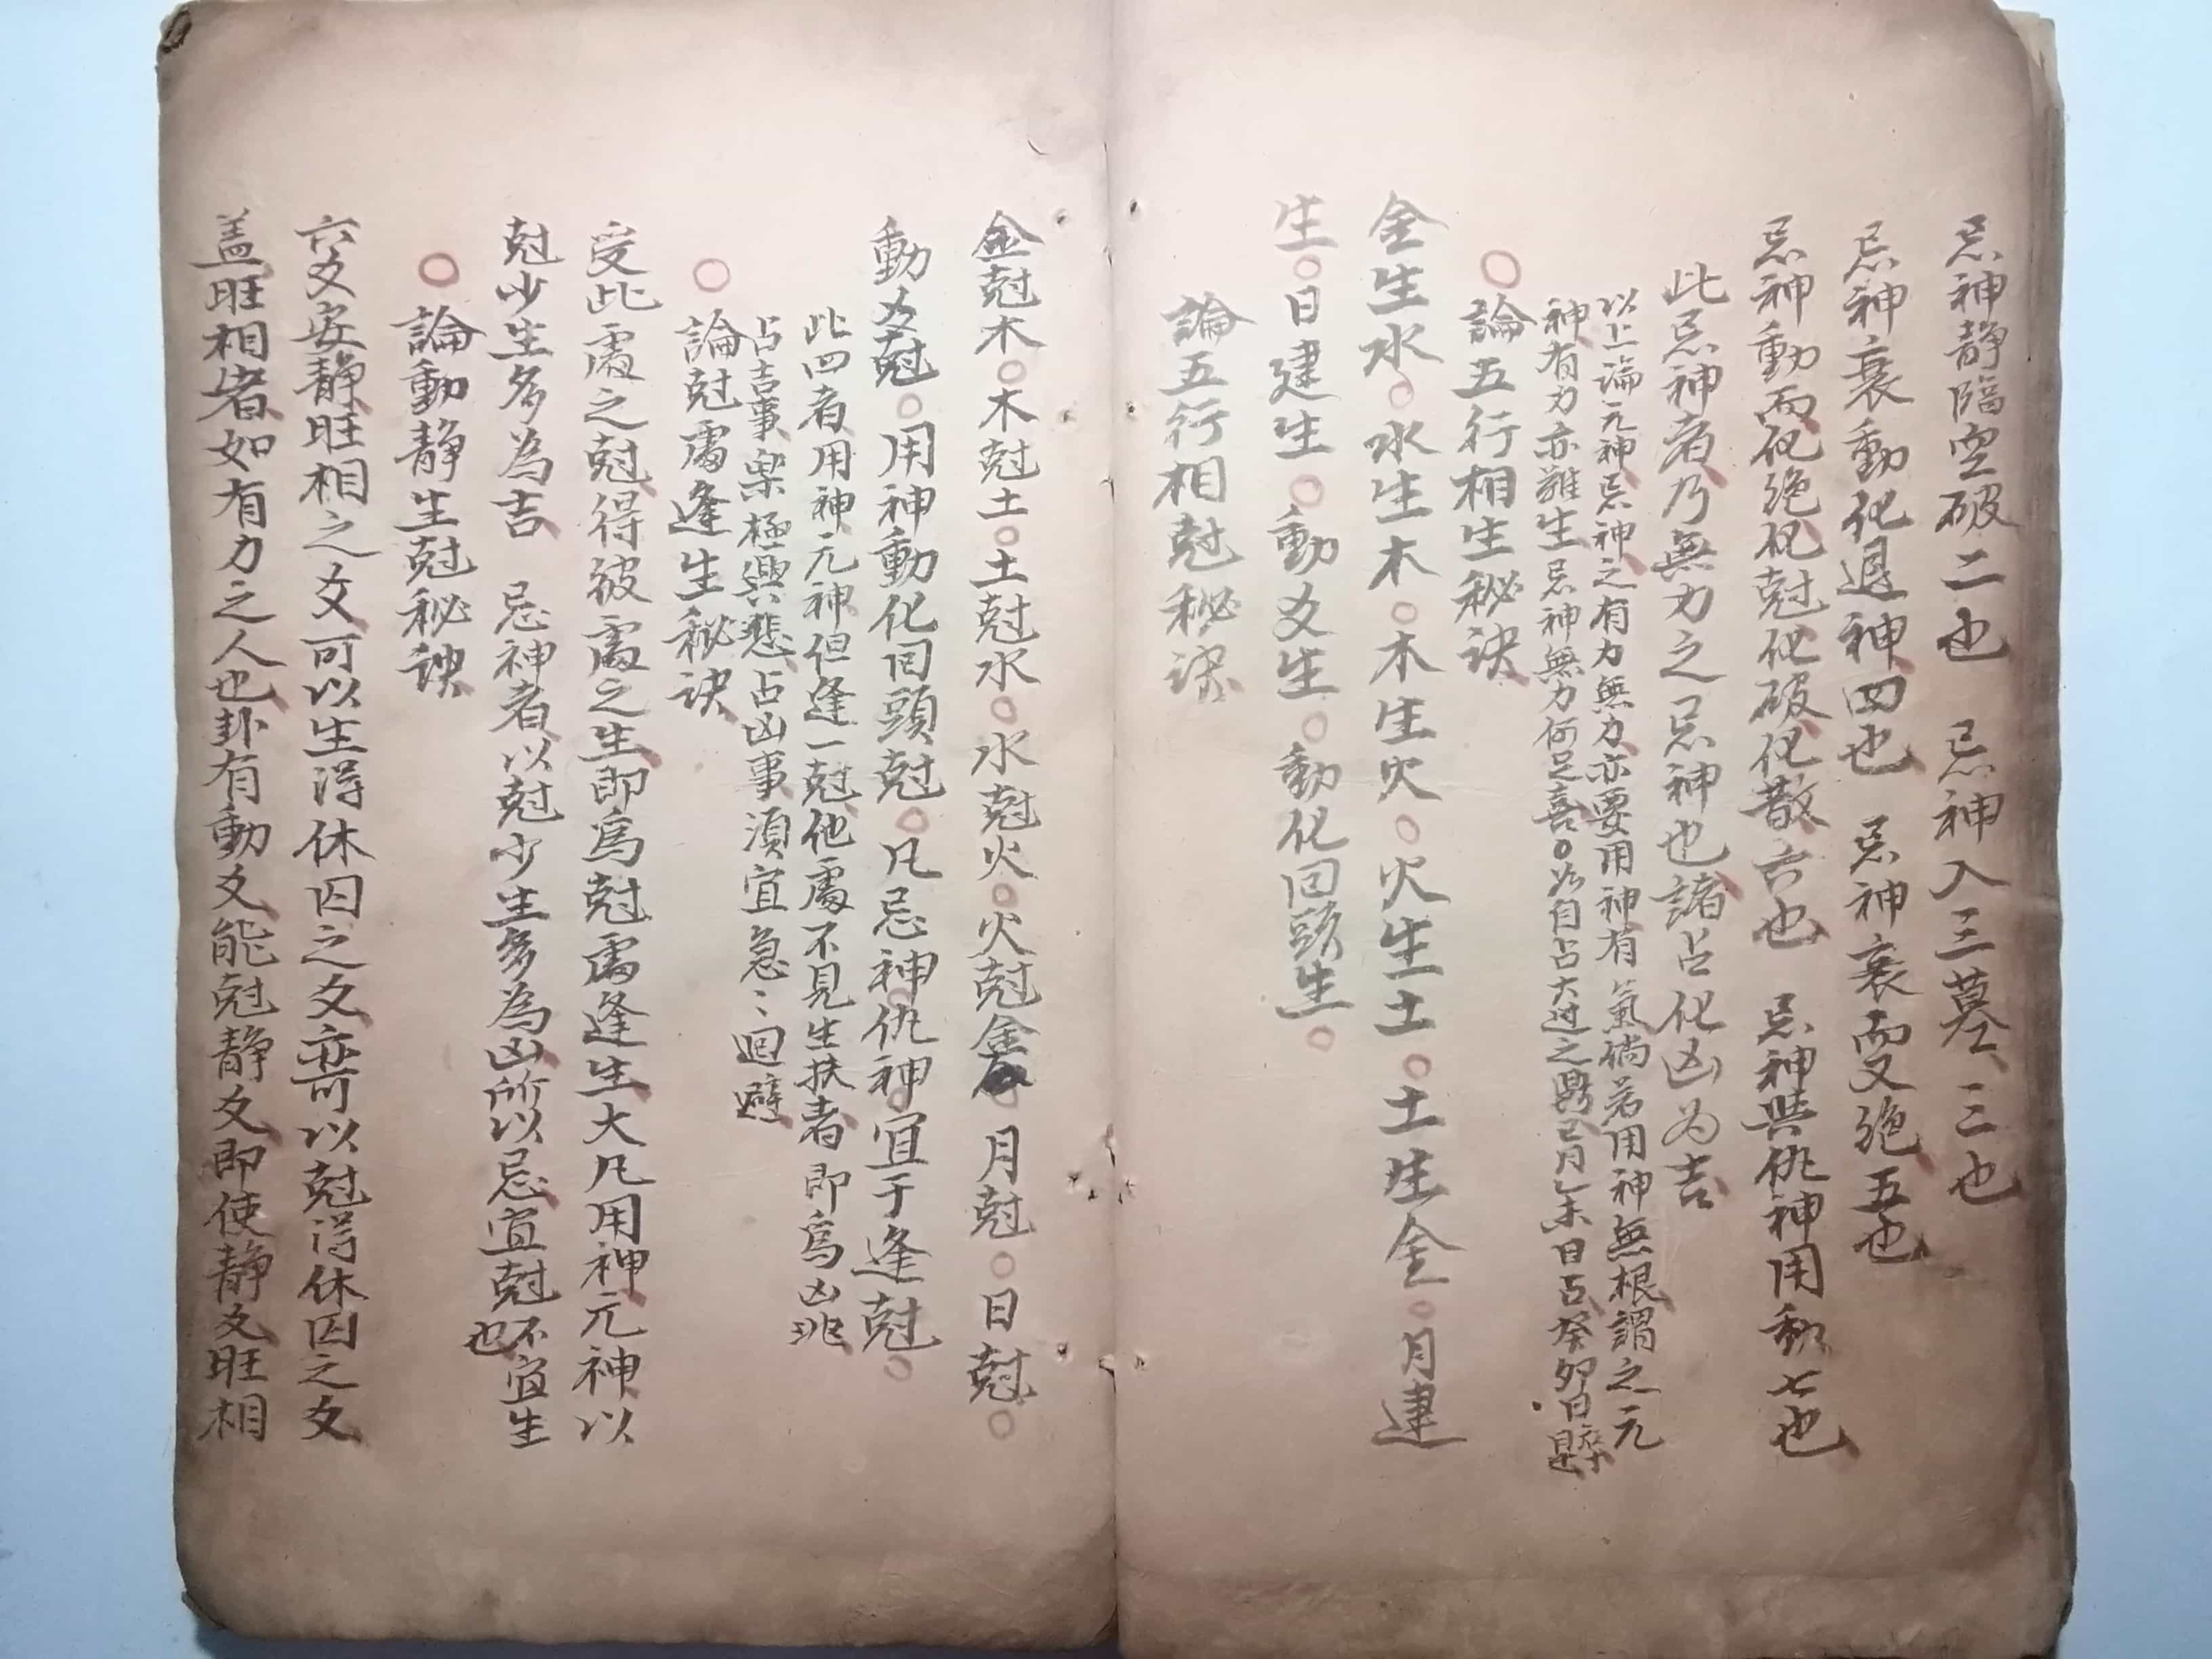 忌神静臨空破二也　忌神入三墓三也
忌神衰動化退神四也　忌神衰而又絶五也
忌神動而化絶化尅化破化散六也　忌神與仇神用動七也
此忌神者乃無力之忌神也諸占化凶为吉
以上論元神忌神之有力無力亦要用神有氣倘若用神無根謂之元
神有力亦難生忌神無力何足喜○如自占大过之鼎巳月乙未日占癸卯日
○論五行相生秘诀
金生水○水生木○木生火○火生土○土生金○月建
生○日建生○動爻生○動化回頭生○
論五行相尅秘诀
金尅木○木尅土○土尅水○水尅火○火尅金○月尅○日尅○
動爻尅○用神動化回頭尅○凡忌神仇神宜于逢尅○
此四者用神元神但逢一尅他處不見生扶者即爲凶兆
占吉事樂極興悲占凶事湏宜急〻迴避
○論尅處逢生秘訣
受此處之尅得彼處之生即爲尅處逢生大凡用神元神以
尅少生多為吉　忌神者以尅少生多為凶所以忌宜尅不宜生也
○論動静生尅秘訣
六爻安静旺相之爻可以生得休囚之爻亦可以尅得休囚之爻
盖旺相者如有力之人也卦有動爻能尅静爻即使静爻旺相